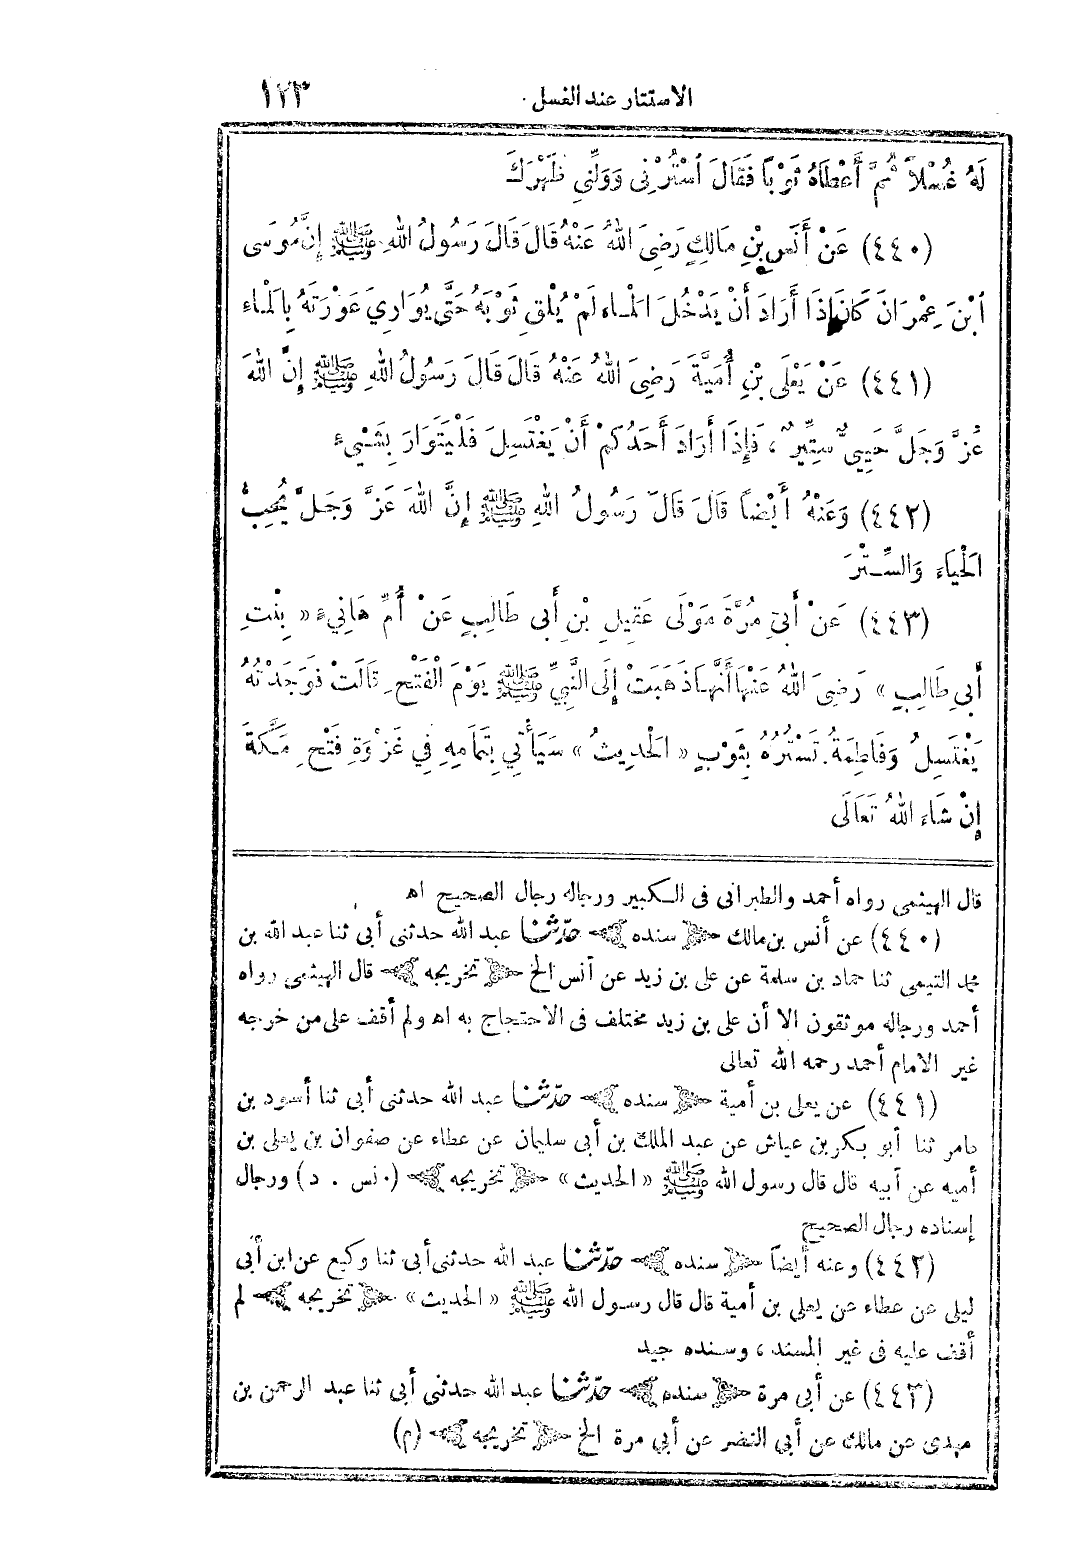 الاستتار عند الغسل ١٢٣
لَهُ غُسْلاً ثُمَّ أَعْطَاهُ ثَوْباً فَقَالَ اسْتُرْنِى وَوَلِّنِى ظَهْرَكَ
(٤٤٠) عَنْ أَنَسِ بْنِ مَالِكٍ رَضِىَ اللهُ عَنْهُ قَالَ قَالَ رَسُولُ اللهِ ﷺ إِنَّ مُوسَى
ابْنَ عِمْرَانَ كَانَ إِذَا أَرَادَ أَنْ يَدْخُلَ الْمَاءَ لَمْ يُلْقِ ثَوْبَهُ حَتَّى يُوَارِيَ عَوْرَتَهُ بِالْمَاءِ
(٤٤١) عَنْ يَعْلَى بْنِ أُمَيَّةَ رَضِىَ اللهُ عَنْهُ قَالَ قَالَ رَسُولُ اللهِ ﷺ إِنَّ اللهَ
عَزَّ وَجَلَّ حَيِيٌّ سِتِّيرٌ ، فَإِذَا أَرَادَ أَحَدُكُمْ أَنْ يَغْتَسِلَ فَلْيَتَوَارَ بِشَيْءٍ
(٤٤٢) وَعَنْهُ أَيْضاً قَالَ قَالَ رَسُولُ اللهِ ﷺ إِنَّ اللهَ عَزَّ وَجَلَّ يُحِبُّ
الْحَيَاءَ وَالسِّتْرَ
(٤٤٣) عَنْ أَبِى مُرَّةَ مَوْلَى عَقِيلِ بْنِ أَبِى طَالِبٍ عَنْ أُمِّ هَانِيءٍ « بِنْتِ
أَبِى طَالِبٍ » رَضِىَ اللهُ عَنْهَا أَنَّهَا ذَهَبَتْ إِلَى النَّبِيِّ ﷺ يَوْمَ الْفَتْحِ قَالَتْ فَوَجَدْتُهُ
يَغْتَسِلُ وَفَاطِمَةُ تَسْتُرُهُ بِثَوْبٍ « الْحَدِيثُ » سَيَأْتِي بِتَمَامِهِ فِي غَزْوَةِ فَتْحِ مَكَّةَ
إِنْ شَاءَ اللهُ تَعَالَى
قال الهيثمى رواه أحمد والطبرانى فى الكبير ورجاله رجال الصحيح اه
(٤٤٠) عن أنس بن مالك ﴿ سنده ﴾ حدّثنا عبد الله حدثنى أبى ثنا عبد الله بن
محمد التيمى ثنا حماد بن سلمة عن على بن زيد عن أنس الخ ﴿ تخريجه ﴾ قال الهيثمى رواه
أحمد ورجاله موثقون الا أن على بن زيد مختلف فى الاحتجاج به اه ولم أقف على من خرجه
غير الامام أحمد رحمه الله تعالى
(٤٤١) عن يعلى بن أمية ﴿ سنده ﴾ حدّثنا عبد الله حدثنى أبى ثنا أسود بن
عامر ثنا أبو بكر بن عياش عن عبد الملك بن أبى سليمان عن عطاء عن صفوان بن يعلى بن
أميه عن أبيه قال قال رسول الله ﷺ « الحديث » ﴿ تخريجه ﴾ (نس . د) ورجال
إسناده رجال الصحيح
(٤٤٢) وعنه أيضاً ﴿ سنده ﴾ حدّثنا عبد الله حدثنى أبى ثنا وكيع عن ابن أبى
ليلى عن عطاء عن يعلى بن أمية قال قال رسول الله ﷺ « الحديث » ﴿ تخريجه ﴾ لم
أقف عليه فى غير المسند ، وسنده جيد
(٤٤٣) عن أبى مرة ﴿ سنده ﴾ حدّثنا عبد الله حدثنى أبى ثنا عبد الرحمن بن
مهدى عن مالك عن أبي النضر عن أبي مرة الخ ﴿ تخريجه ﴾ (م)